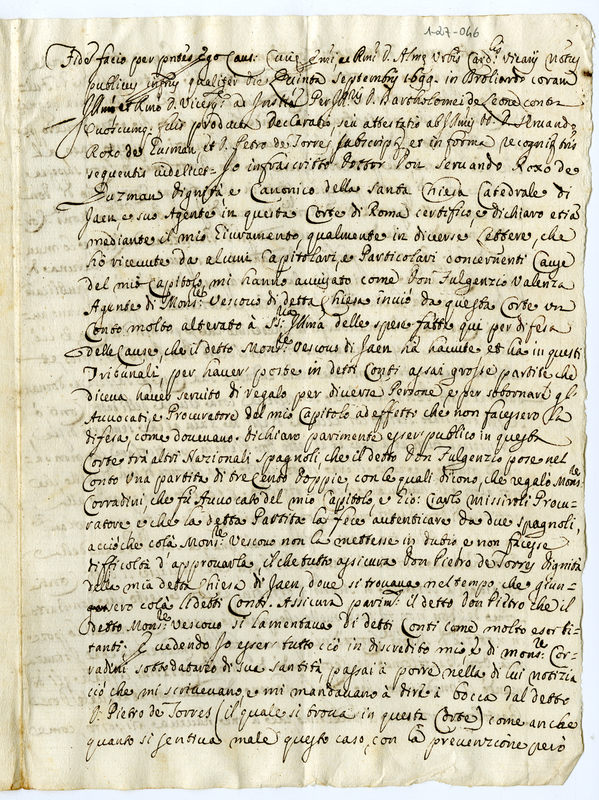 1-27-066
Fidem facio per pntes Ego Caus: Cur: Emi et Rmi D. Almę Urbis Card: Vicarij Notus
publicus infrus qualiter die Quinta Septembris 1699. in Broliardo coram
Illmo et Rmo D. Viceg: ad Instam D. Bartholomei de Leone contra
Quoscumq: fuit producta Declaratio, seu attestatio ab D. Seruando
Roxo de Gusman, et D. Petro de Torres subscripta et in forma recognita
sequentis uidelicet= Io infrascritto Dottor Don Seruando Roxo de
Guzman dignità e Canonico della Santa Chiesa Catedrale di
Jaen e suo Agente in questa Corte di Roma certifico, e dichiaro etiã
mediante il mio Giuramento, qualmente in diuerse lettere, che
hò riceuute da alcuni Capitolari, e Particolari concernenti Cause
del mio Capitolo, mi hanno auuisato come Don Fulgenzio Valenza
Agente di Monsre Vescouo di detta Chiesa inuiò da questa Corte un
Conto molto alterato à S: Illma delle spese fatte quì per difesa
delle Cause, che il detto Monsre Vescouo di Jaen hà hauute et ha in questi
Tribunali, per hauer poste in detti Conti assai grosse partite che
diceua hauer seruito di regalo per diuerse Persone, e per sobornare gl'
Auuocati, e Procuratore del mio Capitolo ad effetto che non facessero la
difesa, come doueuano. dichiaro parimente esser publico in questa
Corte trà altri Nazionali Spagnoli, che il detto Don Fulgenzio pose nel
Conto una partita di trecento Doppie, con le quali dicono, che regalò Monsre
Corradini, che fù Auuocato del mio Capitolo, e Gio: Carlo Missiroli Procu-
ratore e che la detta Partita la fece autenticare da due spagnoli,
acciò che colà Monsre Vescouo non la mettesse in dubio e non facesse
difficoltà d'approuarla, il che tutto assicura Don Pietro de Torres dignità
della mia detta Chiesa di Jaen, doue si trouaua nel tempo, che giun-
sero colà li detti Conti. Assicura parimte il detto Don Pietro che il
detto Monsre Vescouo si lamentaua di detti Conti come molto esorbi-
tanti. E uedendo Io esser tutto ciò in discredito mio e di Monsre Cor-
radini sottodatario di Sua Santità passai à porre nella di lui notizia
ciò che mi scriueuano, e mi mandauano à dire à bocca dal detto
D. Pietro de Torres (il quale si troua in questa Corte) come anche
quanto si sentiua male questo caso, con la preuenzione però